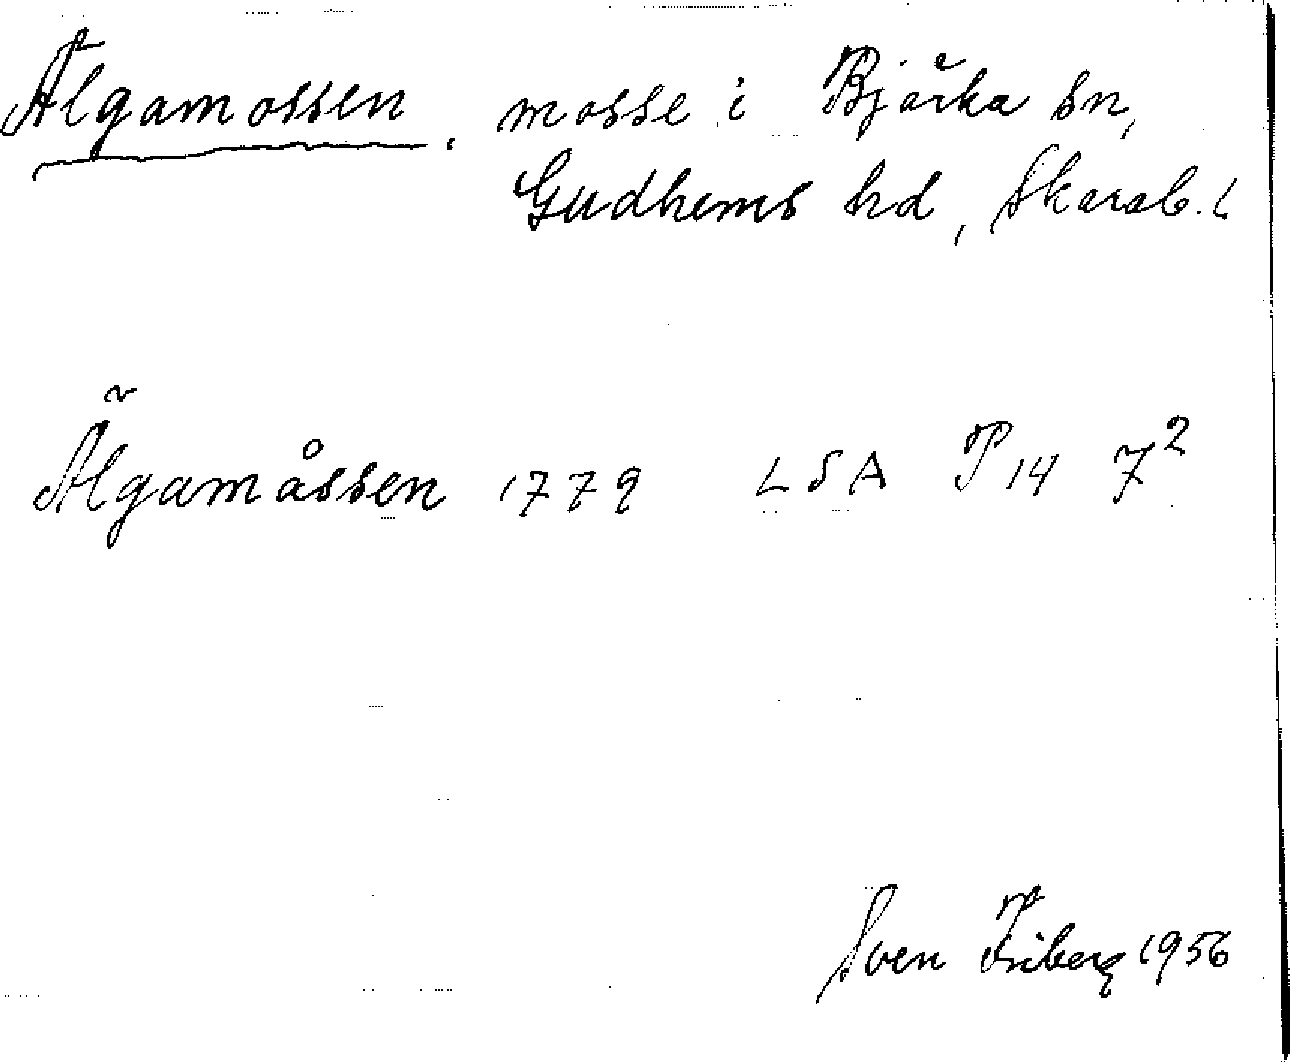 Älgamossen, mosse i Bjärka sn,
Gudhems hd, Skarab. l
Älgamåssen 1779 LSA P14 7²
Sven Friberg 1956